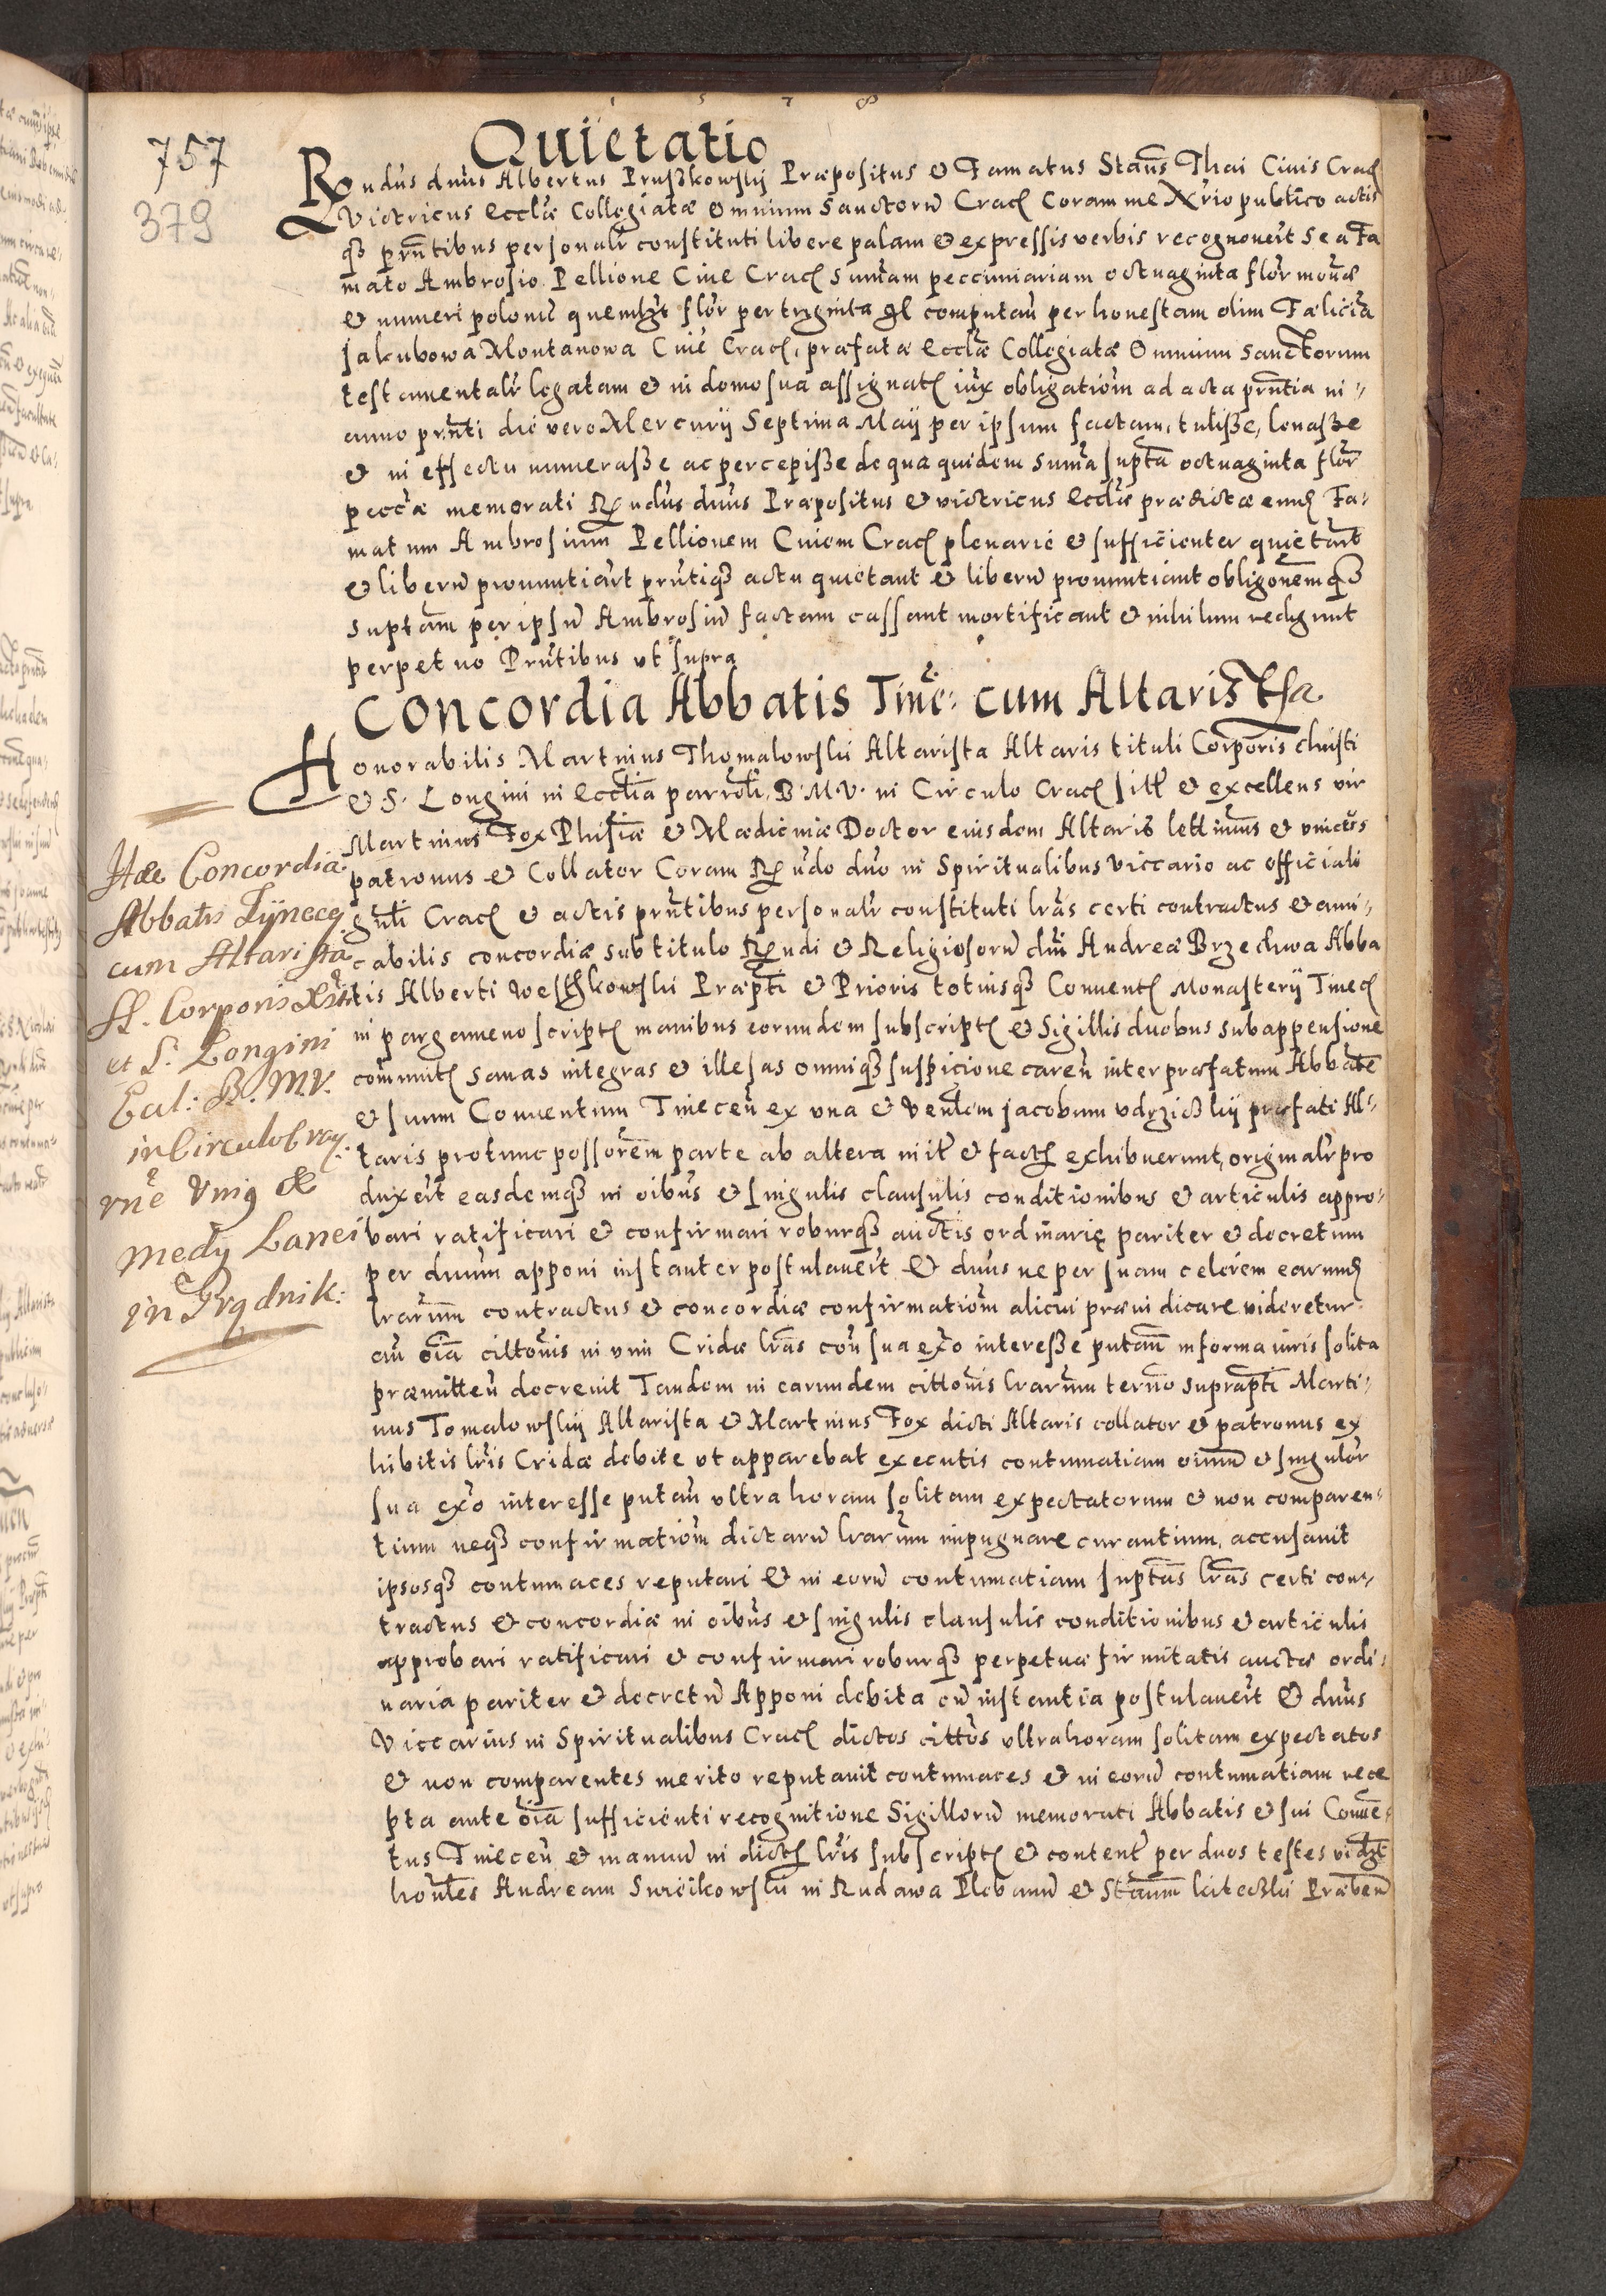 1 5 7 8
757
379
Quietatio
Rndus dnus Albertus Pruszkowsky Præpositus & Famatus Staus Thai Ciuis Crac
Victricus Ecclæ Collegiatæ Omnium Sanctorū Crac Coram me Nrio publico actis
qȝ prntibus personalr constituti libere palam & expressis verbis recognouert se a Fa
mato Ambrosio Pellione Ciue Crac Summam pecciuniariam octuaginta flor monæ
& numeri polonu quemlȝt flor per triginta gl computan per honestam olim Fælicia
Jakubowa Montanowa Ciue Crac, præfatæ Ecclæ Collegiatæ Omnium Sanctorum
testamentalr legatam & in domo sua assignat iux obligatiom ad acta prntia in
anno prnti die vero Mercurij Septima Maij per ipsum factam, tulisse, leuasse
& in effectu numerasse ac percepisse de qua quidem suma supta octuaginta flor
peccæ memorati Rndus dnus Præpositus & victricus Ecclæ prædictæ eund Fa
matum Ambrosium Pellionem Ciuem Crac plenarie & sufficienter quietart
& liberū pronuntiart prntiqȝ actu quietant & liberū pronuntiant obligonemqȝ
suptam per ipsū Ambrosiū factam cassant mortificant & nihilum redigunt
perpetuo Prntibus vt supra
Concordia Abbatis Tinec: cum Altarista
Honorabilis Martinus Thomalowski Altarista Altaris tituli Corporis Christi
& S. Longini in Ecclia parroli. B. M. V. in Circulo Crac sitt & excellens vir
Martinus Fox Phisicæ & Mædicinæ Doctor eiusdem Altaris lettimus & vnicus
patronus & Collator Coram Rndo dno in Spiritualibus Viccario ac officiali
gnli Crac & actis prntibus personalr constituti lras certi contractus & ami
cabilis concordiæ sub titulo Rndi & Religiosorū dni Andreæ Brzechwa Abba
tis Alberti Kowski Præpti & Prioris totiusqȝ Conuent Monasterij Tinec
in pargameno script manibus eorundem subscript & Sigillis duobus subappensione
communit sanas integras & illesas omniqȝ suspicione caren inter præfatum Abbate
& suum Conuentum Tinecen ex vna & Venlem Jacobum præfati Al
taris protunc possorem parte ab altera init & fact exhibuerunt, originalr pro
duxert easdemqȝ in oibus & singulis clausulis conditionibus & articulis appro
bari ratificari & confirmari roburqȝ auctis ordinarię pariter & decretum
per dnum apponi instanter postulauert & dnus ne per suam celerem earund
lrarum contractus & concordiæ confirmatiom alicui præiudicare videretur
an oia cittonis in vim Cridæ lras con sua exo interesse putan in forma iuris solita
præmitten decreuit Tandem in earundem cittonis lrarum termo suprapti Marti
nus Tomalowsky Altarista & Martinus Fox dicti Altaris collator & patronus ex
hibitis lris Cridæ debite vt apparebat executis contumatiam oium & singulor
sua exo interesse putan vltra horam solitam expectatorum & non comparen
tium neqȝ confirmatiom dictarū lrarum impugnare curantium, accusauit
ipsosqȝ contumaces reputari & in eorū contumatiam suptas lras certi con
tractus & concordiæ in oibus & singulis clausulis conditionibus & articulis
approbari ratificari & confirmari roburqȝ perpetuæ firmitatis auctæ ordi
naria pariter & decretū Apponi debita cū instantia postulauert & dnus
Viccarius in Spiritualibus Crac dictos cittos vltra horam solitam expectatos
& non comparentes merito reputauit contumaces & in eorū contumatiam rece
pta ante oia sufficienti recognitione Sigillorū memorati Abbatis & sui Conue
tus Tinecen & manuū in dict lris subscript & content per duos testes vidzt
honles Andream in Rudawa Plebanū & Staum Præben
Hæc Concordia
Abbatis Tÿnecę
cum Altarista
SS. Corporis Xti
et S: Longini
Eccl: B. M.V.
in Circulo Crac:
rnę Vnig &
medÿ Lanei
in Prądnik: